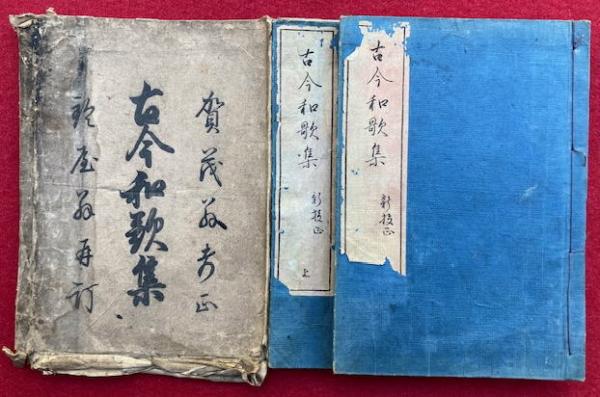 古今和歌集 新挍正
古今和歌集 新挍正 上
賀茂翁考正
古今和歌集
鈴屋翁再訂